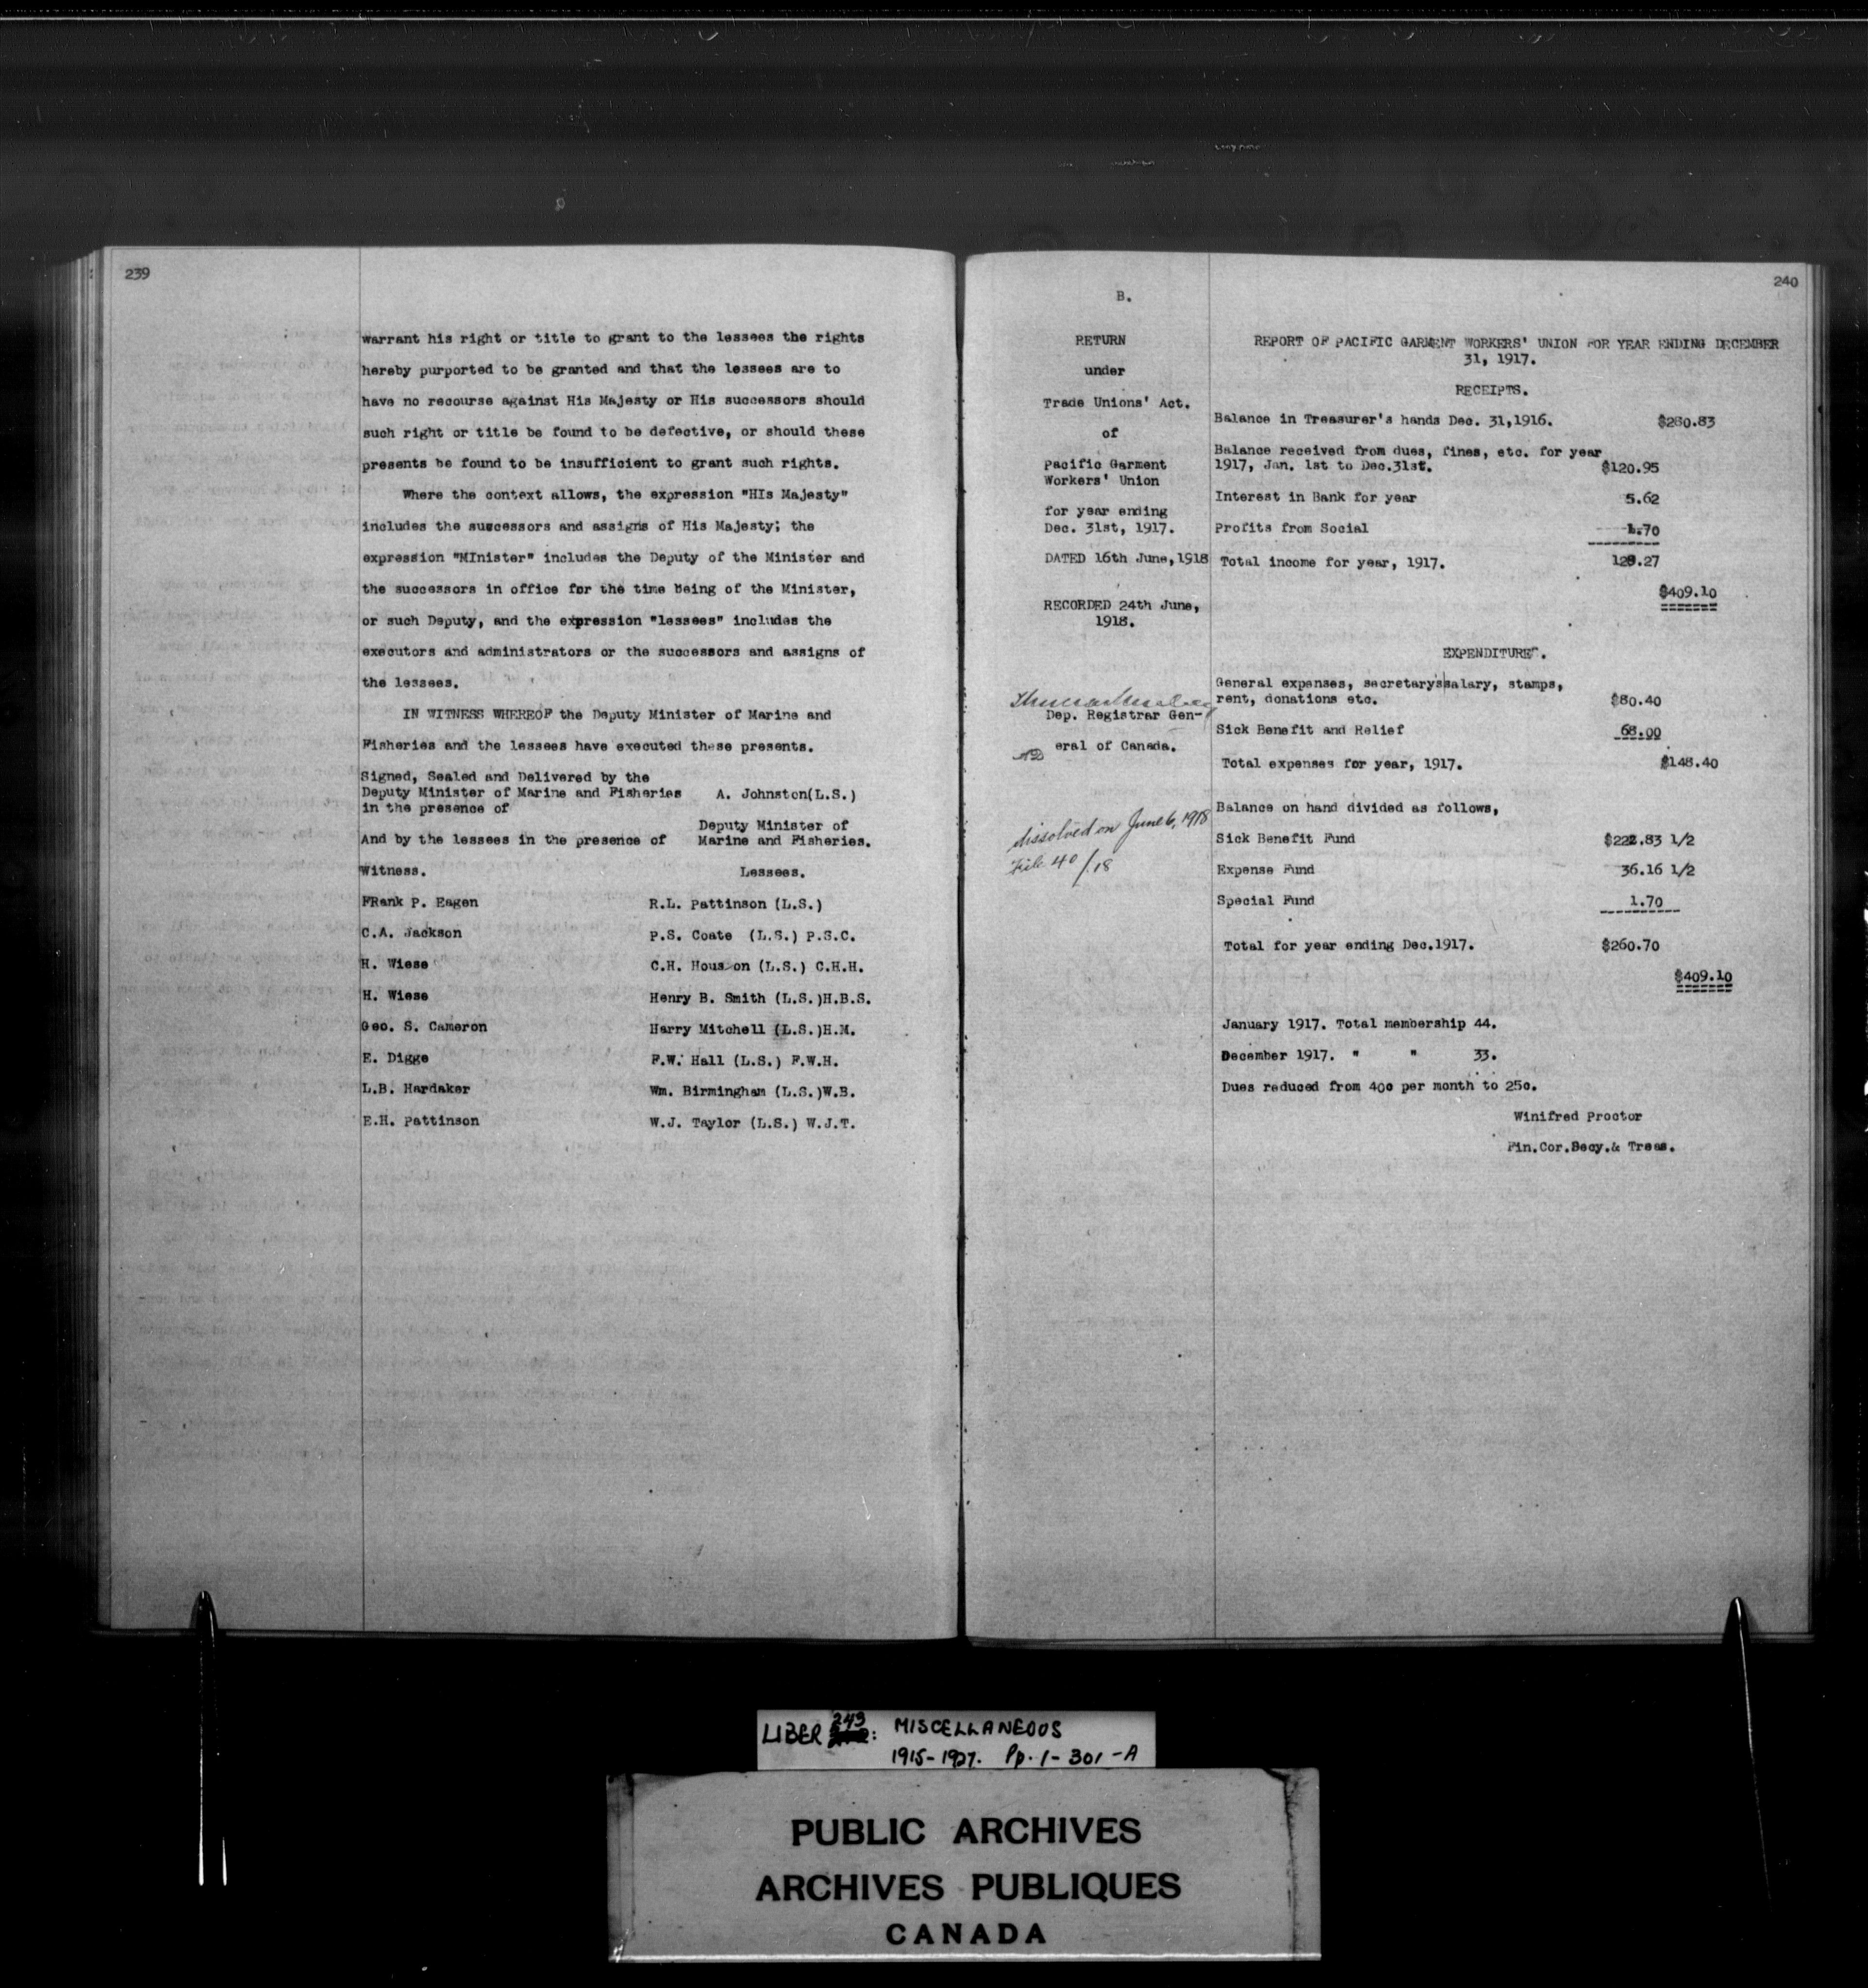 239
warrant his right or title to grant to the lessees the rights
hereby purported to be granted and that the lessees are to
have no recourse against His Majesty or His successors should
such right or title be found to be defective, or should these
presents be found to be insufficient to grant such rights.
Where the context allows, the expression "HIs Majesty"
includes the successors and assigns of His Majesty; the
expression "MInister" includes the Deputy of the Minister and
the successors in office for the time being of the Minister,
or such Deputy, and the expression "lessees" includes the
executors and administrators or the successors and assigns of
the lessees.
IN WITNESS WHEREOF the Deputy Minister of Marine and
Fisheries and the lessees have executed these presents.
Signed, Sealed and Delivered by the
Deputy Minister of Marine and Fisheries A. Johnston(L.S.)
in the presence of
Deputy Minister of
And by the lessees in the presence of Marine and Fisheries.
Witness. Lessees.
FRank P. Eagen R.L. Pattinson (L.S.)
C.A. Jackson P.S. Coate (L.S.) P.S.C.
H. Wiese C.H. Houson (L.S.) C.H.H.
H. Wiese Henry B. Smith (L.S.)H.B.S.
Geo. S. Cameron Harry Mitchell (L.S.)H.M.
E. Digge F.W. Hall (L.S.) F.W.H.
L.B. Hardaker Wm. Birmingham (L.S.)W.B.
E.H. Pattinson W.J. Taylor (L.S.) W.J.T.
240
B.
RETURN
under
Trade Unions' Act.
of
Pacific Garment
Workers' Union
for year ending
Dec. 31st, 1917.
DATED 16th June,1918
RECORDED 24th June,
1918.
Dep. Registrar Gen-
eral of Canada.
dissolved on June 6, 1918
File 40/18
REPORT OF PACIFIC GARMENT WORKERS' UNION FOR YEAR ENDING DECEMBER
31, 1917.
RECEIPTS.
Balance in Treasurer's hands Dec. 31,1916. $280.83
Balance received from dues, fines, etc. for year
1917, Jan. 1st to Dec.31st. $120.95
Interest in Bank for year 5.62
Profits from Social 1.70
Total income for year, 1917. 128.27
$409.10
EXPENDITURE.
General expenses, secretary's salary, stamps,
rent, donations etc. $80.40
Sick Benefit and Relief 68.00
Total expenses for year, 1917. $148.40
Balance on hand divided as follows,
Sick Benefit Fund $222.83 1/2
Expense Fund 36.16 1/2
Special Fund 1.70
Total for year ending Dec.1917. $260.70
$409.10
January 1917. Total membership 44.
December 1917. " " 33.
Dues reduced from 40c per month to 25c.
Winifred Proctor
Fin.Cor.Secy.& Treas.
LIBER 243: MISCELLANEOUS
1915-1927. Pp. 1-301-A
PUBLIC ARCHIVES
ARCHIVES PUBLIQUES
CANADA